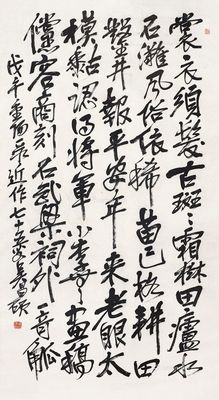 裳衣須髮古斑〻霜樹田廬水
石灘風俗依稀耕田
鑿井報平安年來老眼太
模黏認得將軍小李畫稿
儻容商刻石武梁祠外奇觚
戊午重陽录近作七十五叟吴昌碩